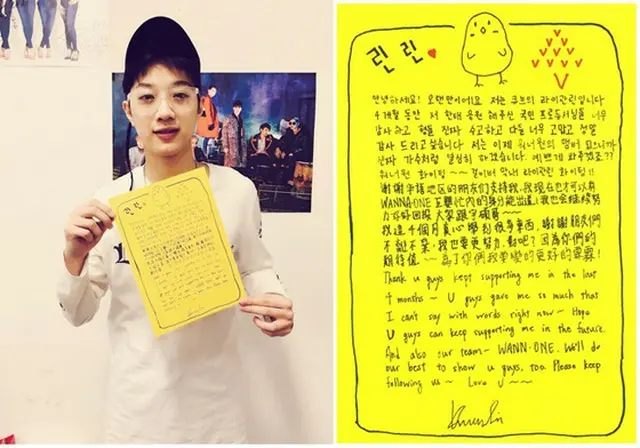 린린
안녕하세요! 오랜만이에요 저는 큐브의 라이관린입니다
4개월 동안 저 한테 응원 해주신 국민 프로듀서님들 너무
감사 하고 형들 진짜 수고하고 다들 너무 고맙고 정말
감사 드리고 싶습니다 저는 이제 워너원의 멤버 모습니까
진짜 가수처럼 열심히 하겠습니다. 예쁘게 봐주겠죠??
워너원 화이팅 ~~ 라이관린 화이팅!!
謝謝 地區的朋友們支持我,我現在也才可以有
WANNA·ONE 的身分能出道,我也會繼續努
力
我這4個月真心學到很多東西,謝謝朋友們
不離不棄,我也要更努力,對吧?因為你們的
期待值~為了你們我要變的更好的
Thank u guys kept supporting me in the last
4 months ~ U guys gave me so much that
I can't say with words right now~ Hope
U guys can keep supporting me in the future.
And also our team- WANN·ONE. We'll do
our best to show u guys, too. Please keep
following us ~ Love U ~~~